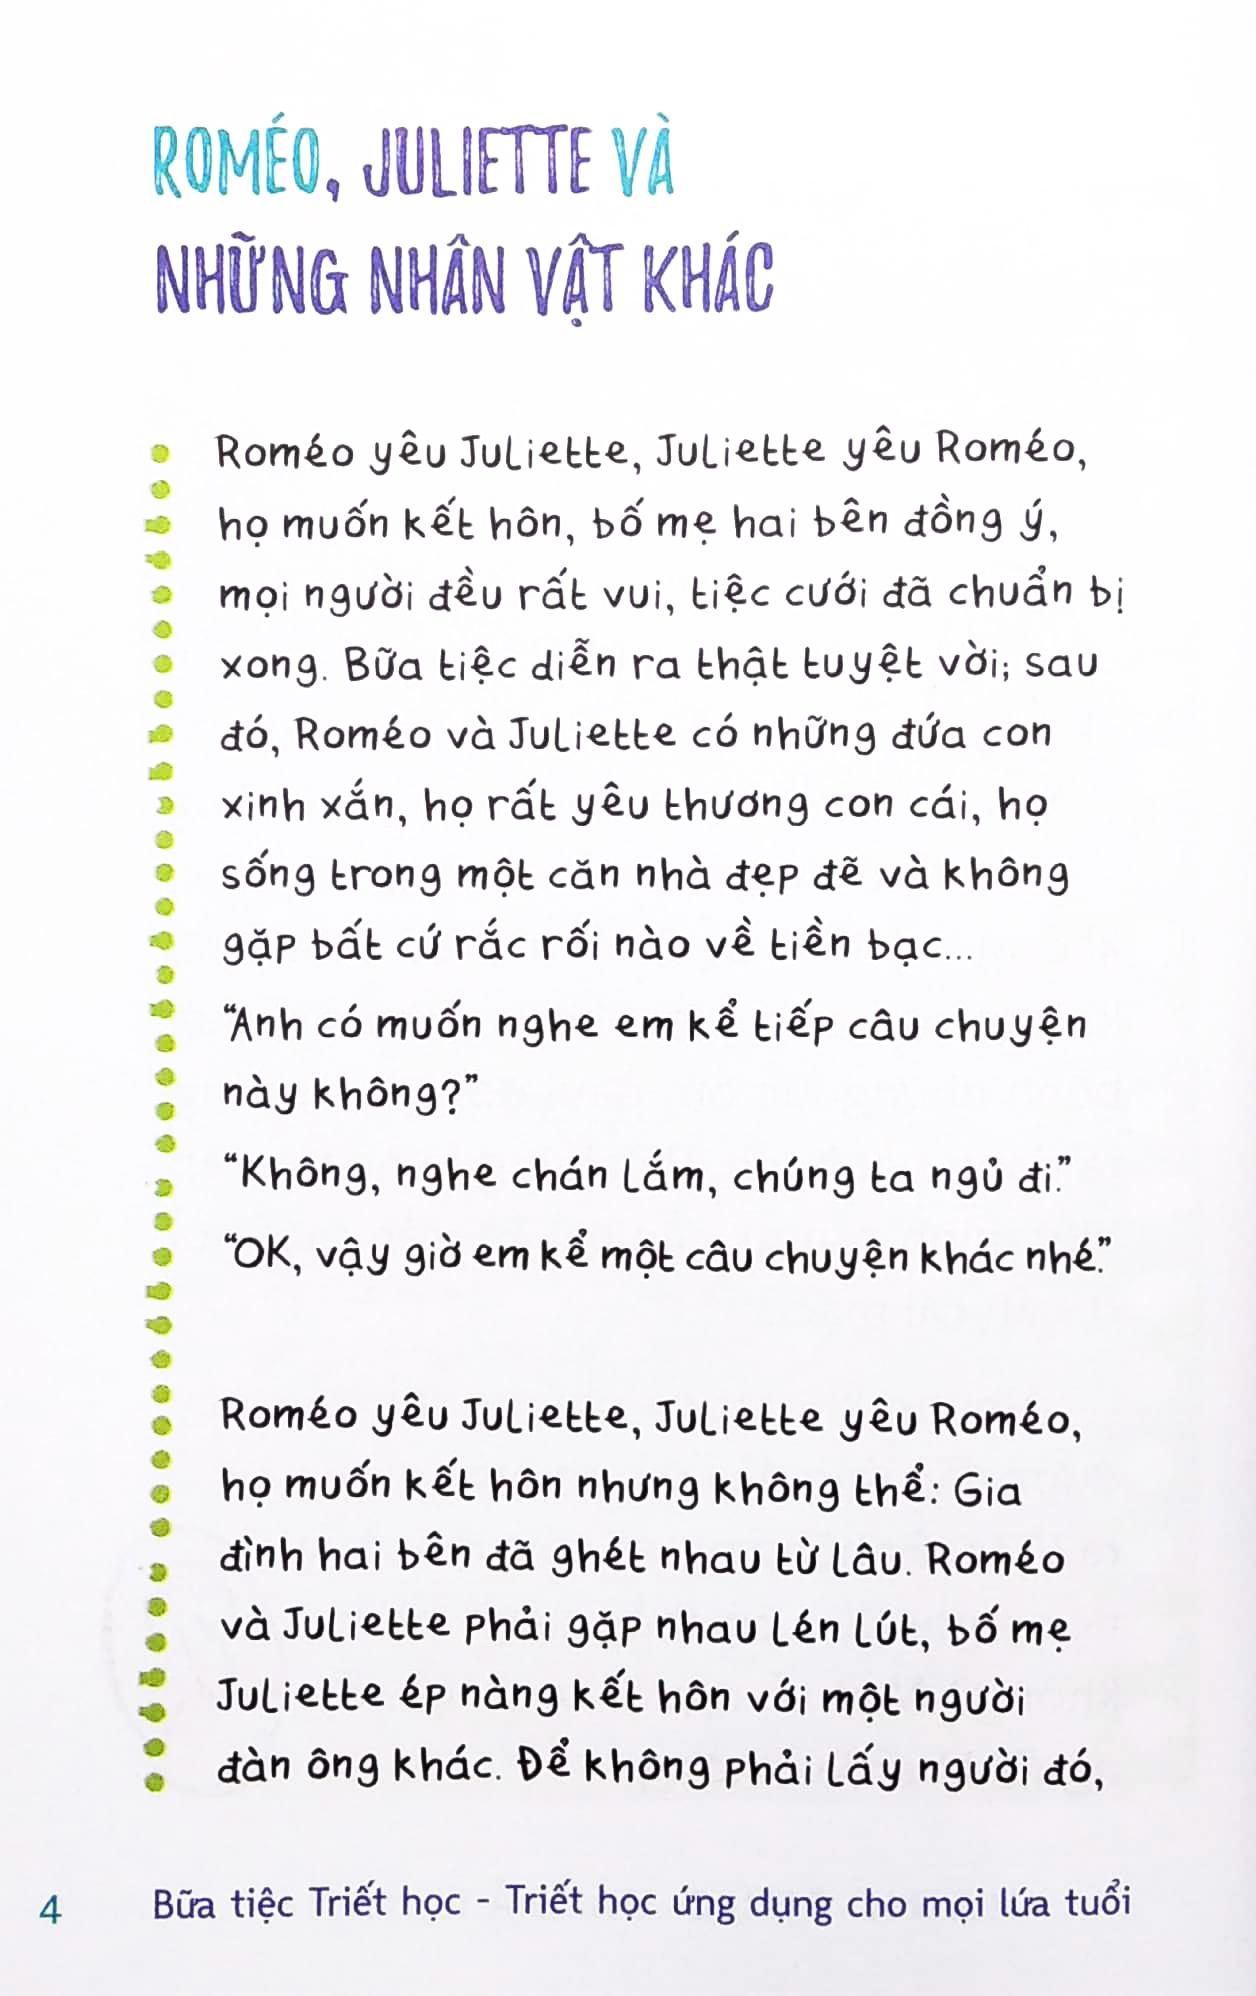 ROMÉO, JULIETTE VÀ
NHỮNG NHÂN VẬT KHÁC
Roméo yêu Juliette, Juliette yêu Roméo,
họ muốn kết hôn, bố mẹ hai bên đồng ý,
mọi người đều rất vui, tiệc cưới đã chuẩn bị
xong. Bữa tiệc diễn ra thật tuyệt vời; sau
đó, Roméo và Juliette có những đứa con
xinh xắn, họ rất yêu thương con cái, họ
sống trong một căn nhà đẹp đẽ và không
gặp bất cứ rắc rối nào về tiền bạc...
“Anh có muốn nghe em kể tiếp câu chuyện
này không?”
“Không, nghe chán lắm, chúng ta ngủ đi.”
“OK, vậy giờ em kể một câu chuyện khác nhé.”
Roméo yêu Juliette, Juliette yêu Roméo,
họ muốn kết hôn nhưng không thể: Gia
đình hai bên đã ghét nhau từ lâu. Roméo
và Juliette phải gặp nhau lén lút, bố mẹ
Juliette ép nàng kết hôn với một người
đàn ông khác. Để không phải lấy người đó,
4 Bữa tiệc Triết học - Triết học ứng dụng cho mọi lứa tuổi